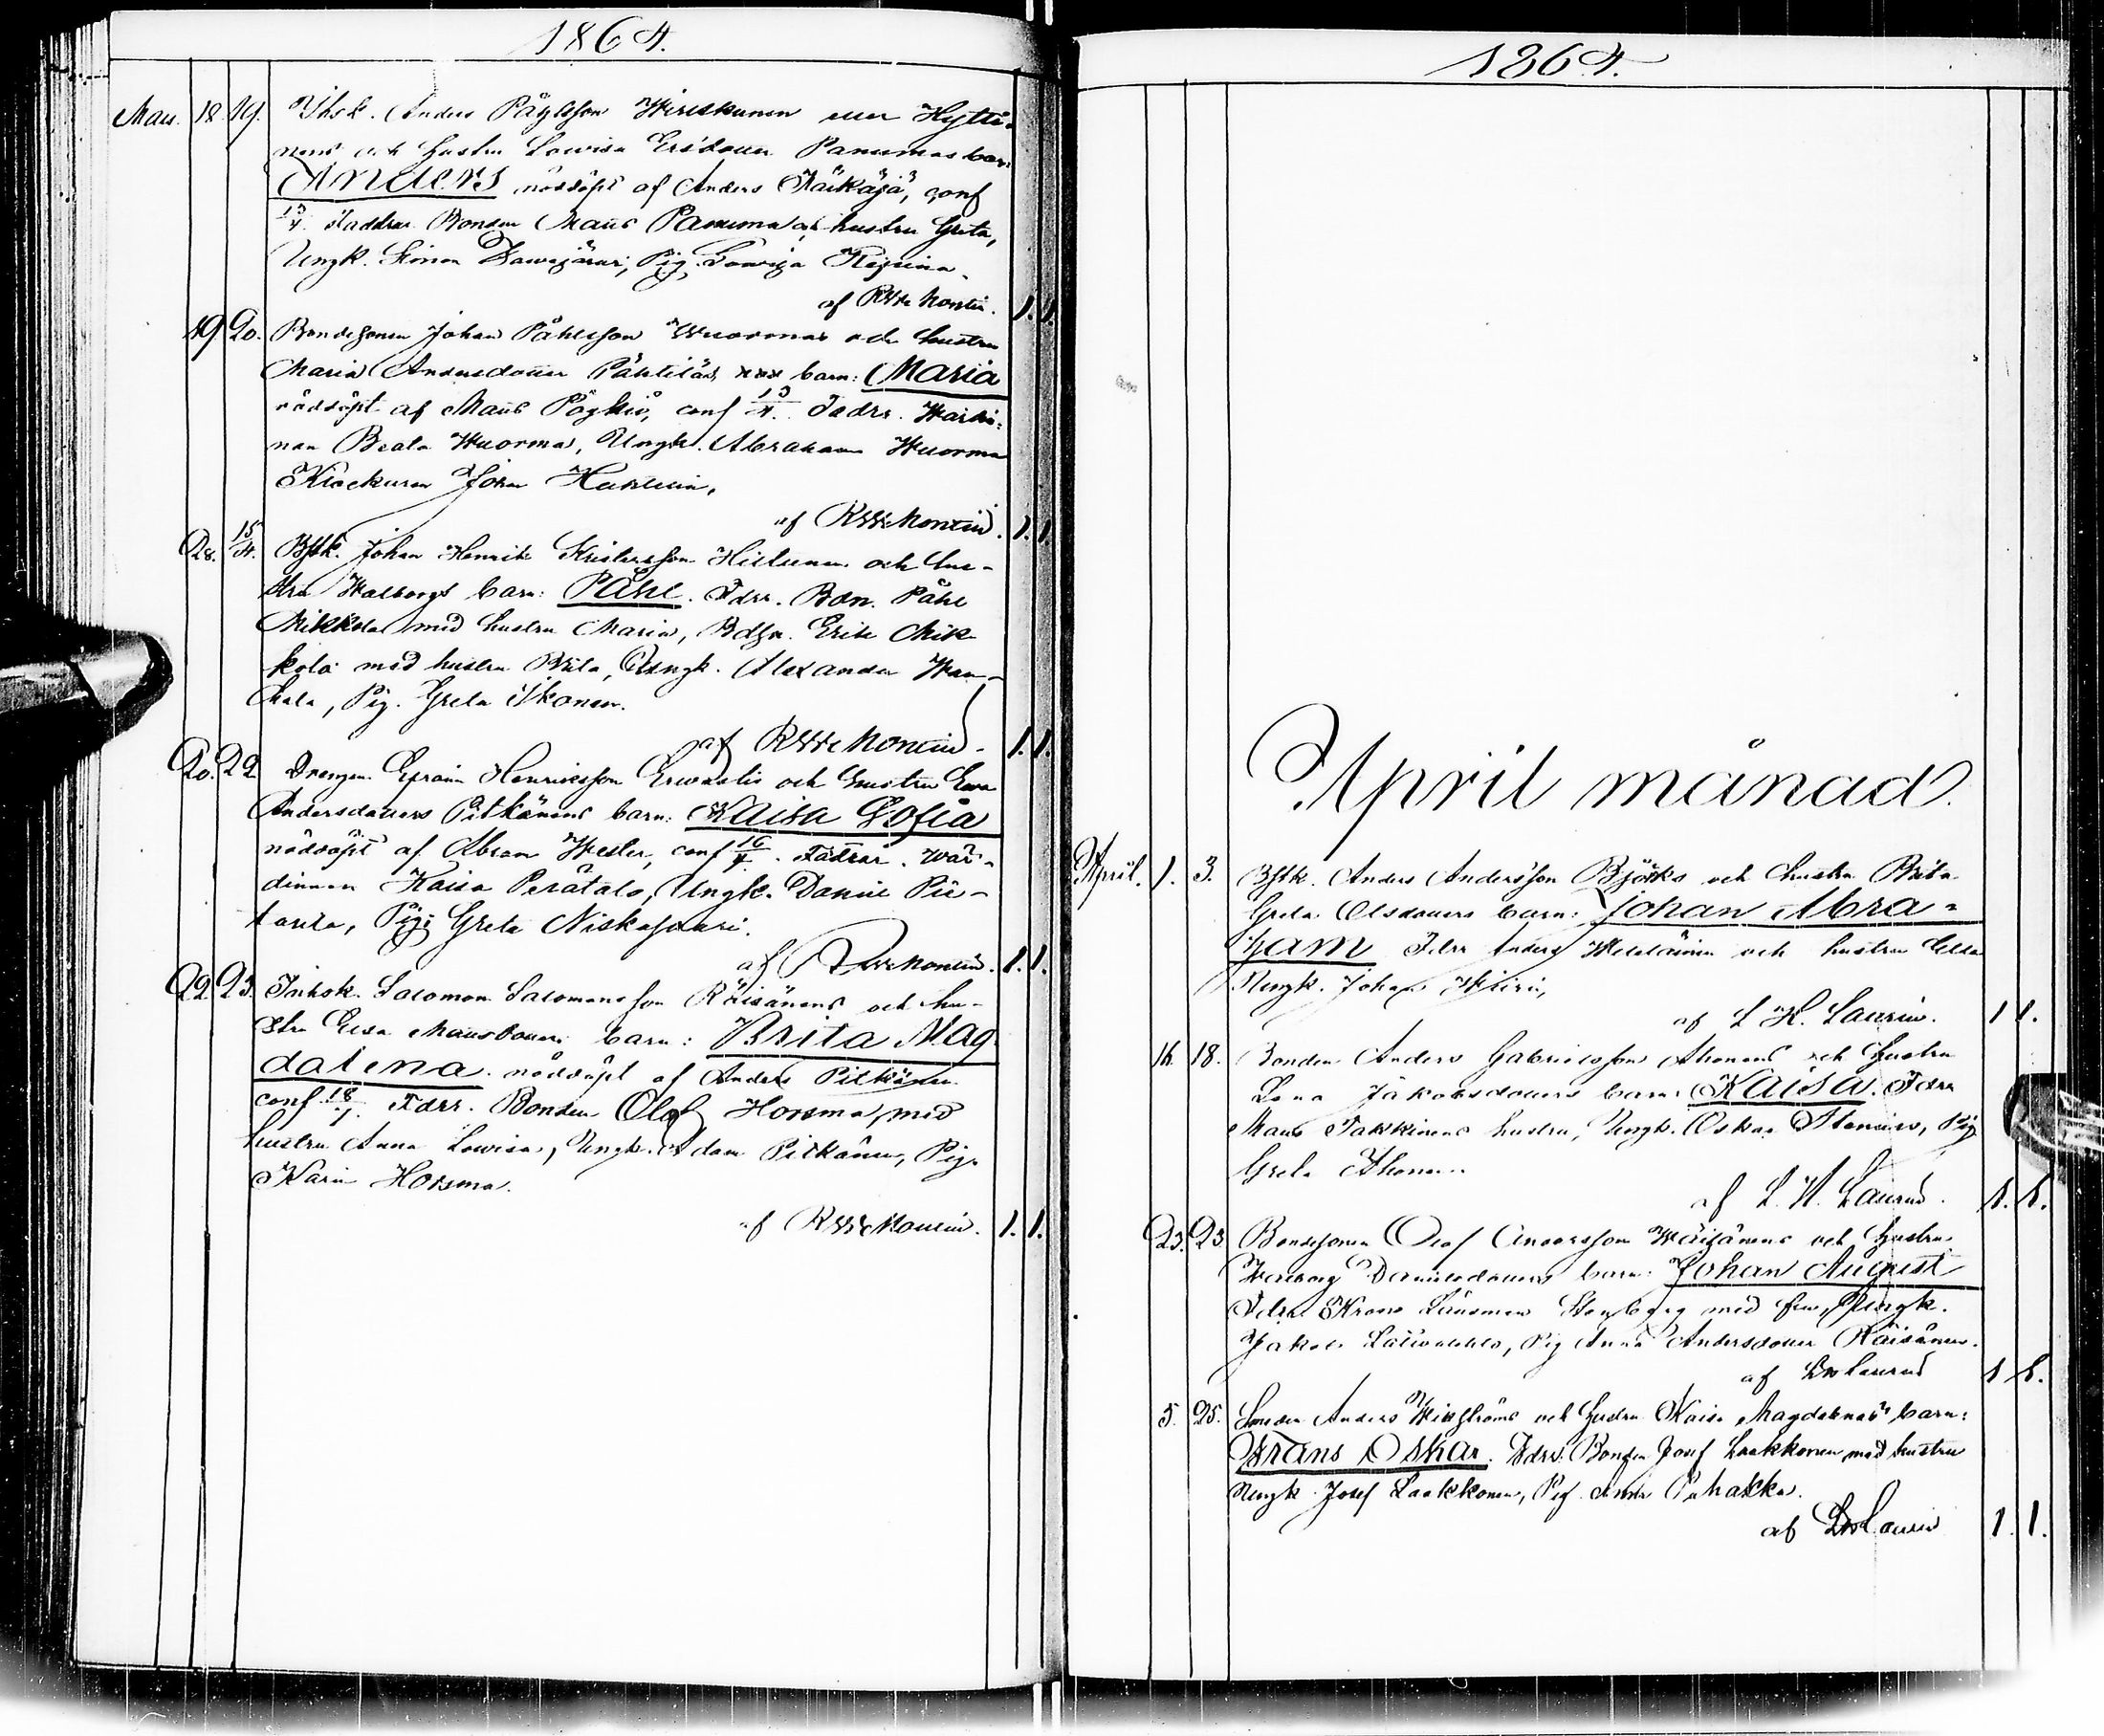 1864.
Mars. 18 19. Ihsk. Anders Påhlsson Wirkkunen eller Hyttö-
nens och hustru Lowisa Ersdotter Panumas barn:
Anders nöddöpt af Anders Jäikäjä, conf
13/4. Faddrar Bonden Mauts Panuma o. hustru Greta,
Ungk. Simon Pig. Lowisa
af Montin. 1. 1.
19 20. Bondesonen Johan Påhlsson Wuormas och hustru
Maria Andersdotter Pähtiläs barn: Maria
nöddöpt af Mauts conf 13/4. Fadrr. Wärdi-
nnan Beata Wuorma, Ungk. Abraham Wuorma
Klockaren Johan
af Montin. 1. 1.
28. 15/4. Bstk. Johan Henrik Kristersson Hiltunen och hus-
tru Walborgs barn: Påhl. Fdrr. Bdn. Påhl
Mikkola med hustru Maria, Bdsn. Erik Mik-
kola med hustru Brita, Ungk. Alexander
Pig. Greta Ikonen.
af Montin. 1. 1.
20. 22. Drengen Efraim Henriksson Erwastis och hustru Eva
Andersdotters Pitkänens barn: Kaisa Sofia
nöddöpt af Abram Wester, conf 16/4. Fadrar. Wär-
dinnan Kaisa Perätalo, Ungk. Daniel Pie-
tarila, Pig: Greta Niskasaari.
af Montin. 1. 1.
22 23. Inhsk. Salomon Salomonsson Räisänens och hu-
stru Elsa Mautsdotters barn: Brita Mag
dalena. nöddöpt af Anders Pitkänen
conf 18/4. Fdrr. Bonden Olof Horsma, med
hustru Anna Lowisa, Ungk. Adam Pitkänen, Pig.
Karin Horsma.
af Montin. 1. 1.
1864.
April månad.
April. 1. 3. Bstk. Anders Andersson Björks och hustru Brita
Greta Olsdotters barn: Johan Abra-
ham Fdrr Anders och hustru
Ungk. Johan
af L H. Laurin. 1 1.
16. 18. Bonden Anders Gabrielsson Ahonens och hustru
Lena Jakobsdotters barn: Kaisa. Fdrr
Mauts Takkinens hustru, Ungk. Oskar Stenius, Pig
Greta Ahonen.
af L. H. Laurin. 1. 1.
23. 23 Bondesonen Olof Andersson Wäisänens och hustru
Walborg Danielsdotters barn: Johan August
Fdrr Krono Länsman Stenberg med fru, Ungk.
Jakob Pig Anna Andersdotter Räisänen.
af Laurin 1 1.
5. 25. Smeden Anders Wikströms och hustru Kaisa Magdalenas barn:
Frans Oskar. Fdrr: Bonden Josef Laakkonen med hustru
Ungk. Josef Laakkonen, Pig. Anna Puhakka.
af Laurin 1. 1.